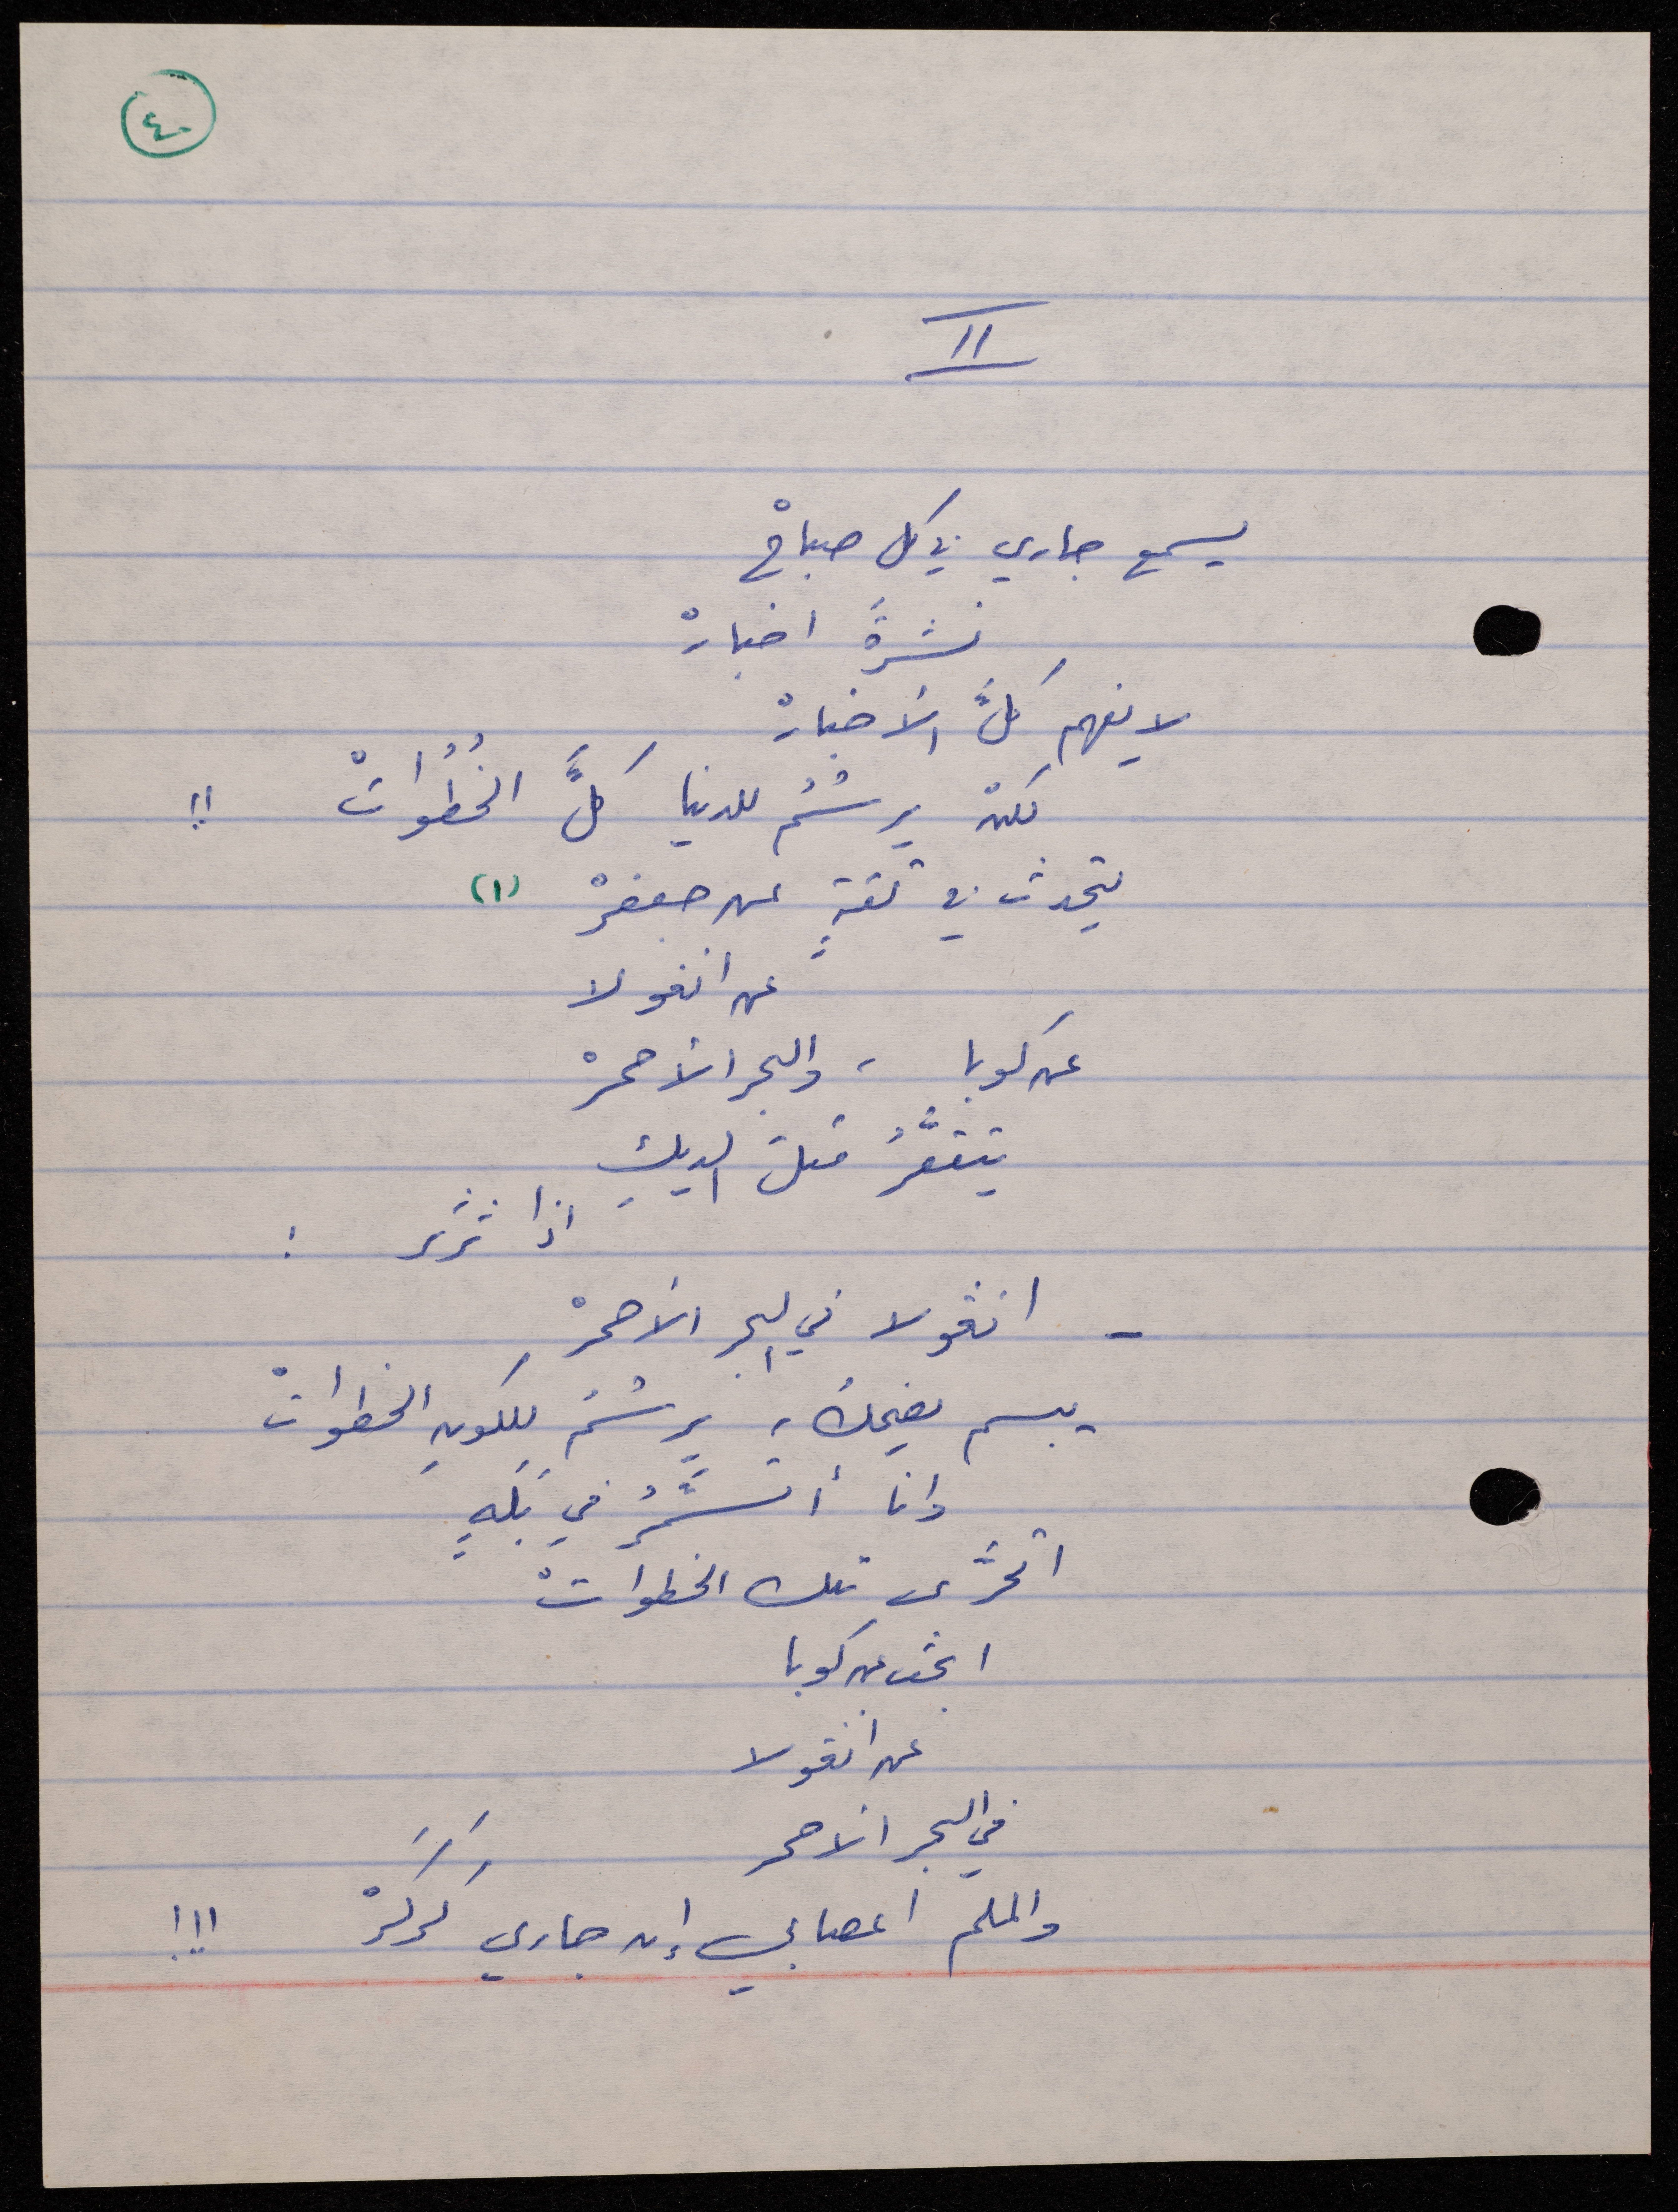 ٤٠
II
يسمع جاري في كل صباحْ
نشرةَ اخبارْ
لا يفهم كلَّ الأخبارْ
لكنْ يرسُمُ للدنيا كلَّ الخُطُواتْ !!
يتحدث في ثقةٍ عن جعفرْ (١)
عن انغولا
عن كوبا ، والبحر الأحمرْ
يتقعَّرُ مثلَ الديكِ
اذا ثرثر :
- انڠولا في البحر الأحمرْ
يبسم يضحك ، يرسُمُ للكونِ الخطواتْ
وانا أتسمَّرُ في بَلَهٍ
اتحرَّى تلك الخطواتْ
ابحث عن كوبا
عن انغولا
في البحر الاحمر
والملم اعصابي إن جاري كَركَرْ !!!